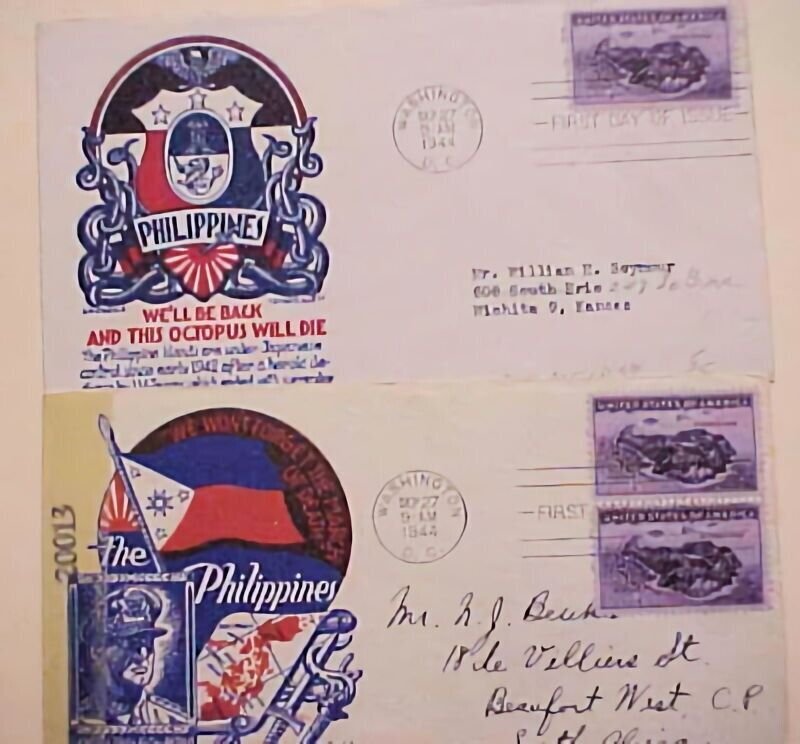 UNITED STATES OF AMERICA
WASHINGTON
SEP 27
9 AM
1944
D. C.
FIRST DAY OF ISSUE
PHILIPPINES
WE'LL BE BACK
AND THIS OCTOPUS WILL DIE
The Philippine Islands are under Japanese
control since early 1942 after a heroic de-
which ended with surrender
Mr. William E. Seymour
606 South Erie
Wichita 9, Kansas
5c
UNITED STATES OF AMERICA
UNITED STATES OF AMERICA
WASHINGTON
SEP 27
9 AM
1944
D. C.
FIRST
20013
WE WON'T FORGET THE
OF
the Philippines
Mr. N. J.
18 de Villiers St.
Beaufort West C.P.
South Africa